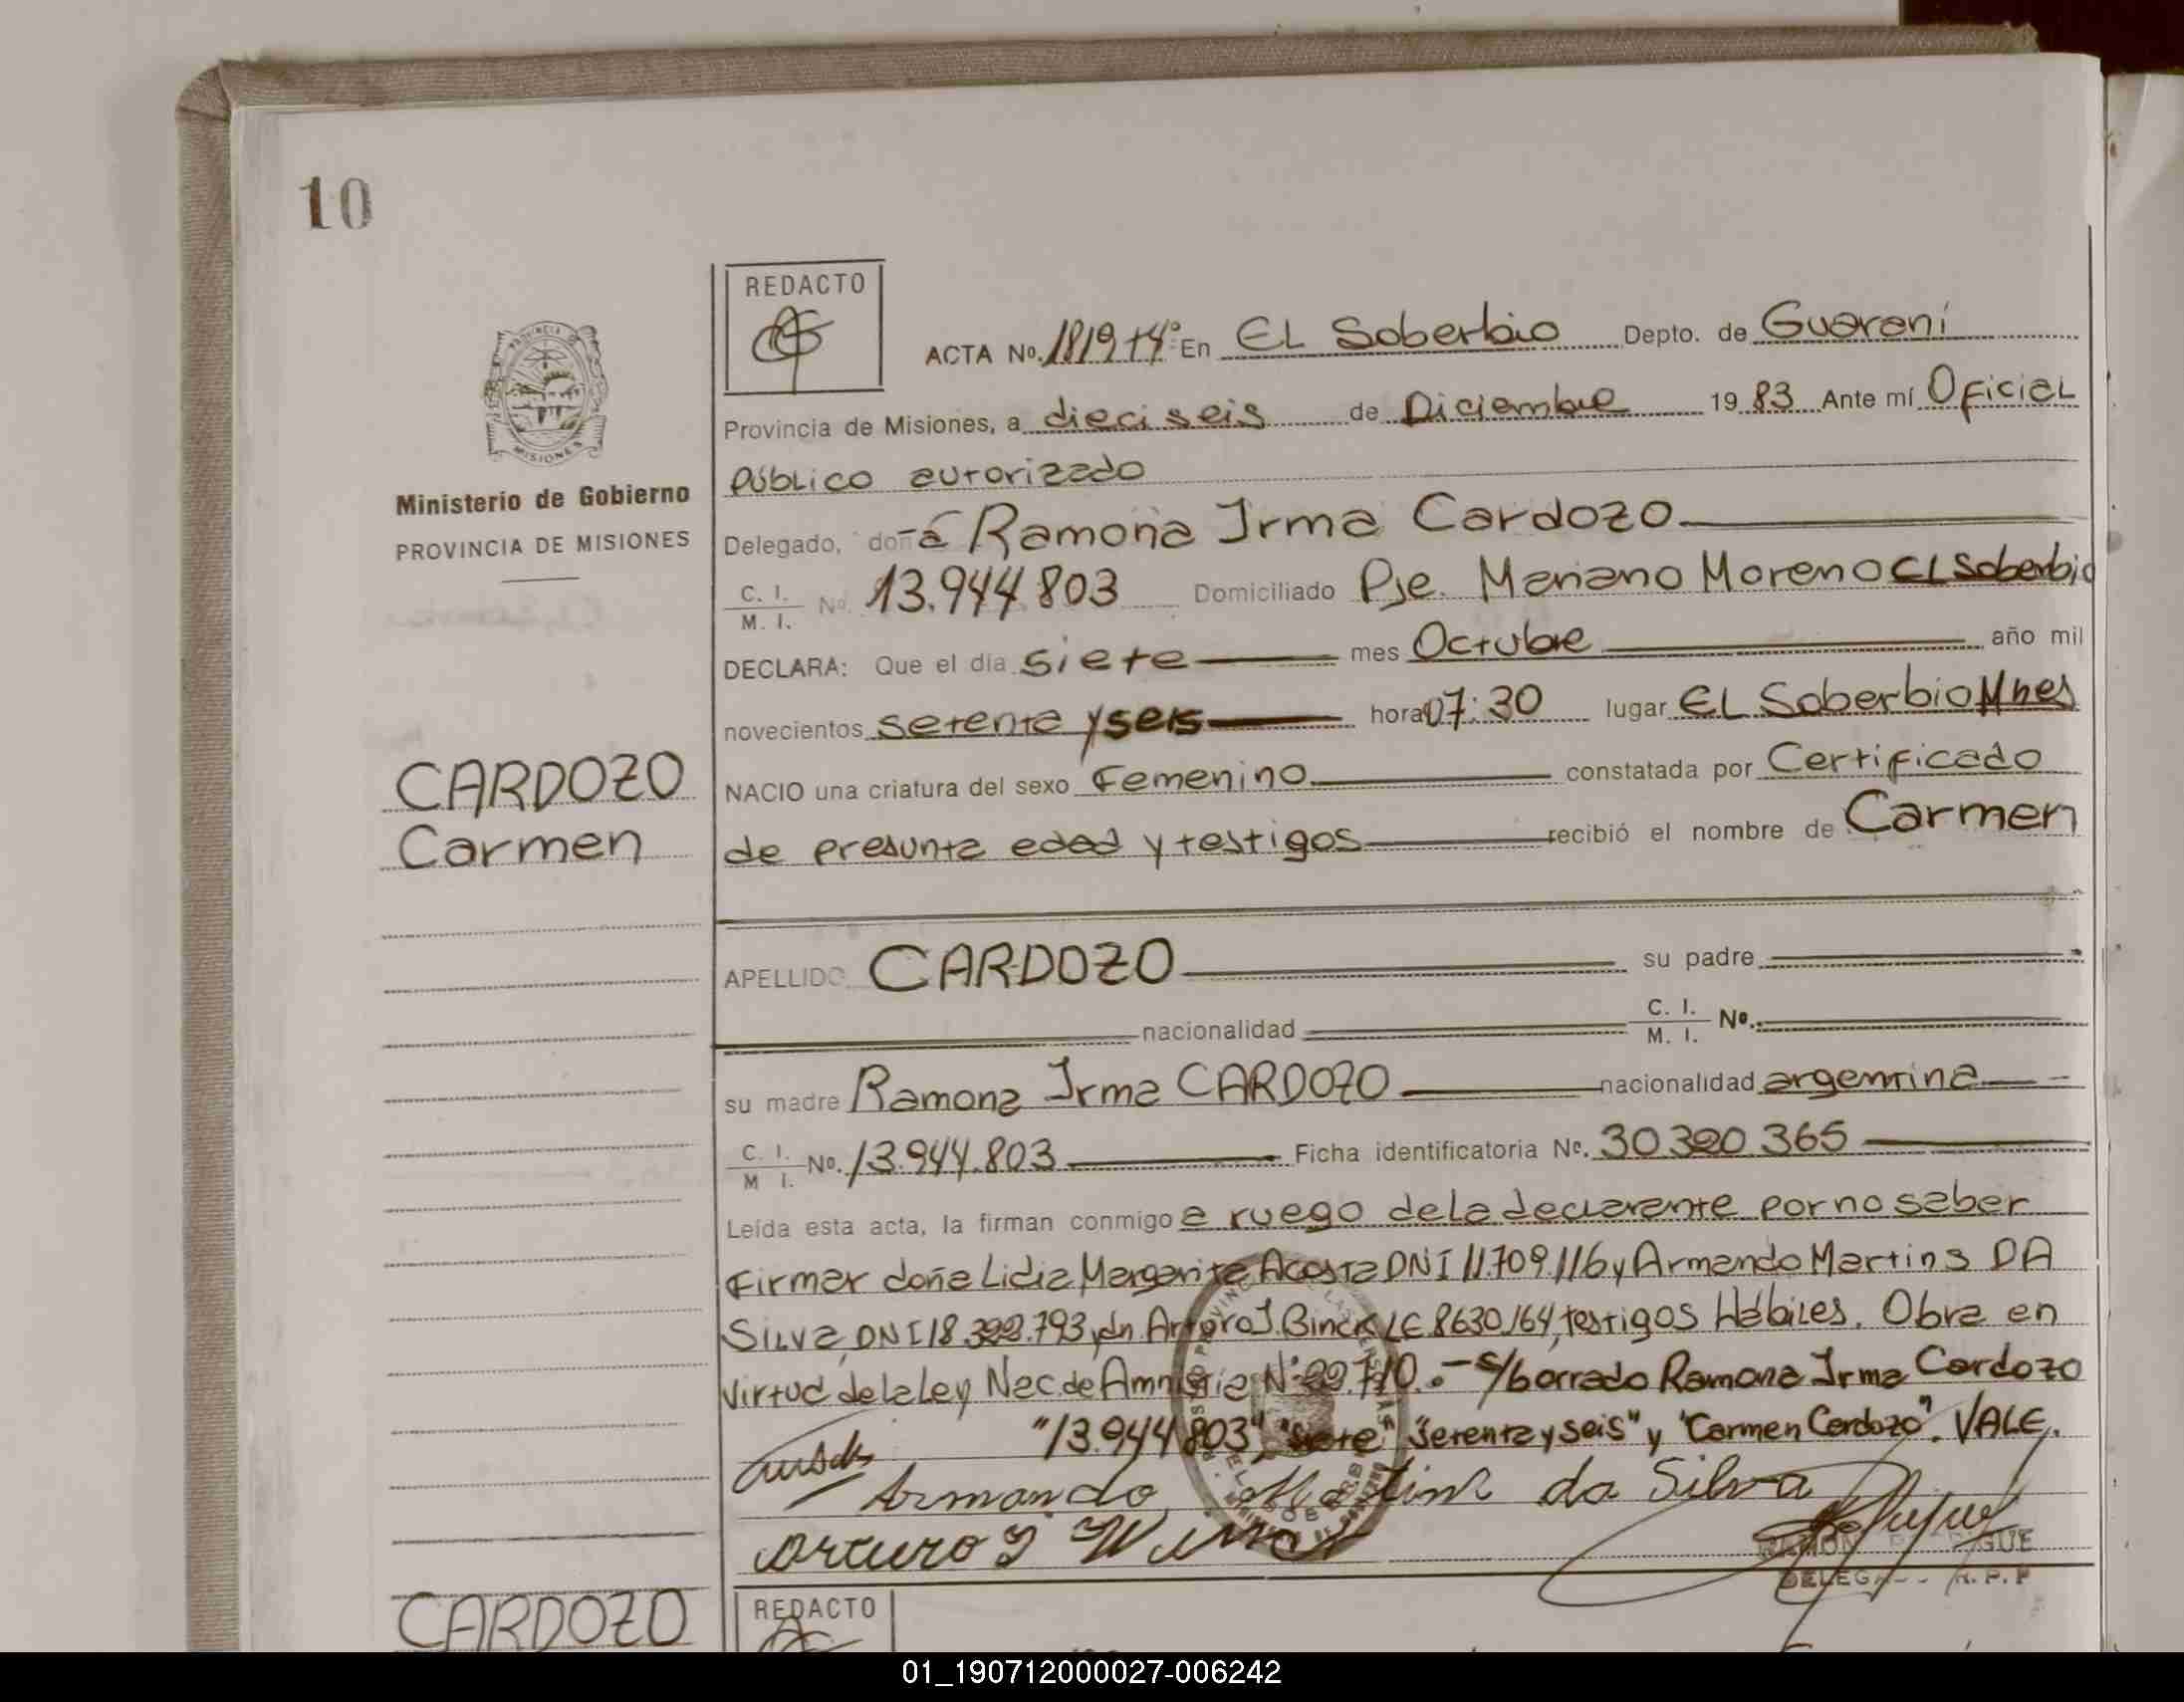 10
REDACTO
ACTA No. 1819 t4º En EL Soberbio Depto. de Guaraní
Provincia de Misiones, a dieciseis de Diciembre 1983 Ante mí Oficial
Público autorizado
Delegado, doña Ramona Irma Cardozo
C. I. M. I. No. 13.944.803 Domiciliado Pje. Mariano Moreno EL Soberbio
DECLARA: Que el día siete mes Octubre año mil
novecientos setenta y seis hora 07:30 lugar EL Soberbio Mnes
NACIO una criatura del sexo Femenino constatada por Certificado
de presunta edad y testigos recibió el nombre de Carmen
APELLIDO CARDOZO su padre
nacionalidad C. I. M. I. No.
su madre Ramona Irma CARDOZO nacionalidad argentina
C. I. M I. No. 13.944.803 Ficha identificatoria No. 30320365
Leída esta acta, la firman conmigo a ruego de la declarante por no saber
Firmar doña Lidia Margarita Acosta DNI 11.709.116 y Armando Martins DA
Silva DNI 18.322.793 y dn Arturo J. Binck LE 8630164, testigos Hábiles. Obra en
Virtud de la Ley Nac. de Amnistia Nº 22.710.- s/borrado Ramona Irma Cardozo
"13.944.803" "siete" "Setenta y seis" y "Carmen Cardozo". VALE.
Armando Martins da Silva
Arturo J
DELEGA R. P. P
PROVINCIA
MISIONES
Ministerio de Gobierno
PROVINCIA DE MISIONES
CARDOZO
Carmen
CARDOZO
REDACTO
01_190712000027-006242